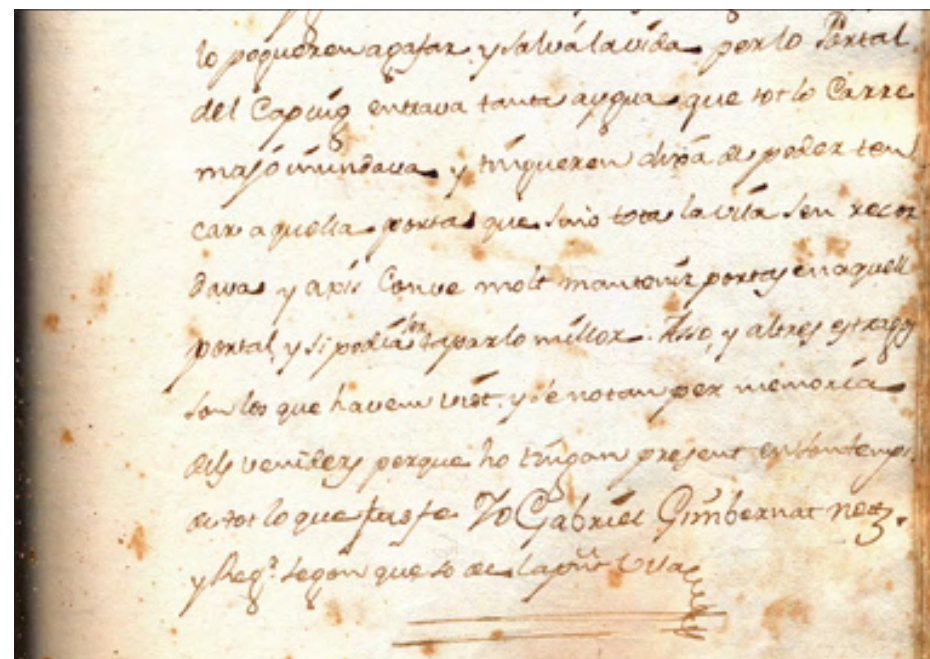 lo pogueren agafar, y salvá la vida. per lo Portal
del Capuig entrava tanta aygua que tot lo Carre
majó inundava y tingueren dixa de poder ten
car aquella porta que sino tota la vila sen recor
dava y axis Conve molt mantenir portas en aquell
portal, y si podia ser taparlo millor. Asso, y altres estragg
son los que havem vist. y se notan per memoria
dels veniders perque ho tingan present en son temps.
de tot lo que fas fe Yo Gabriel Gimbernat nott.
y Reg.r segon que so de la pnt Vila